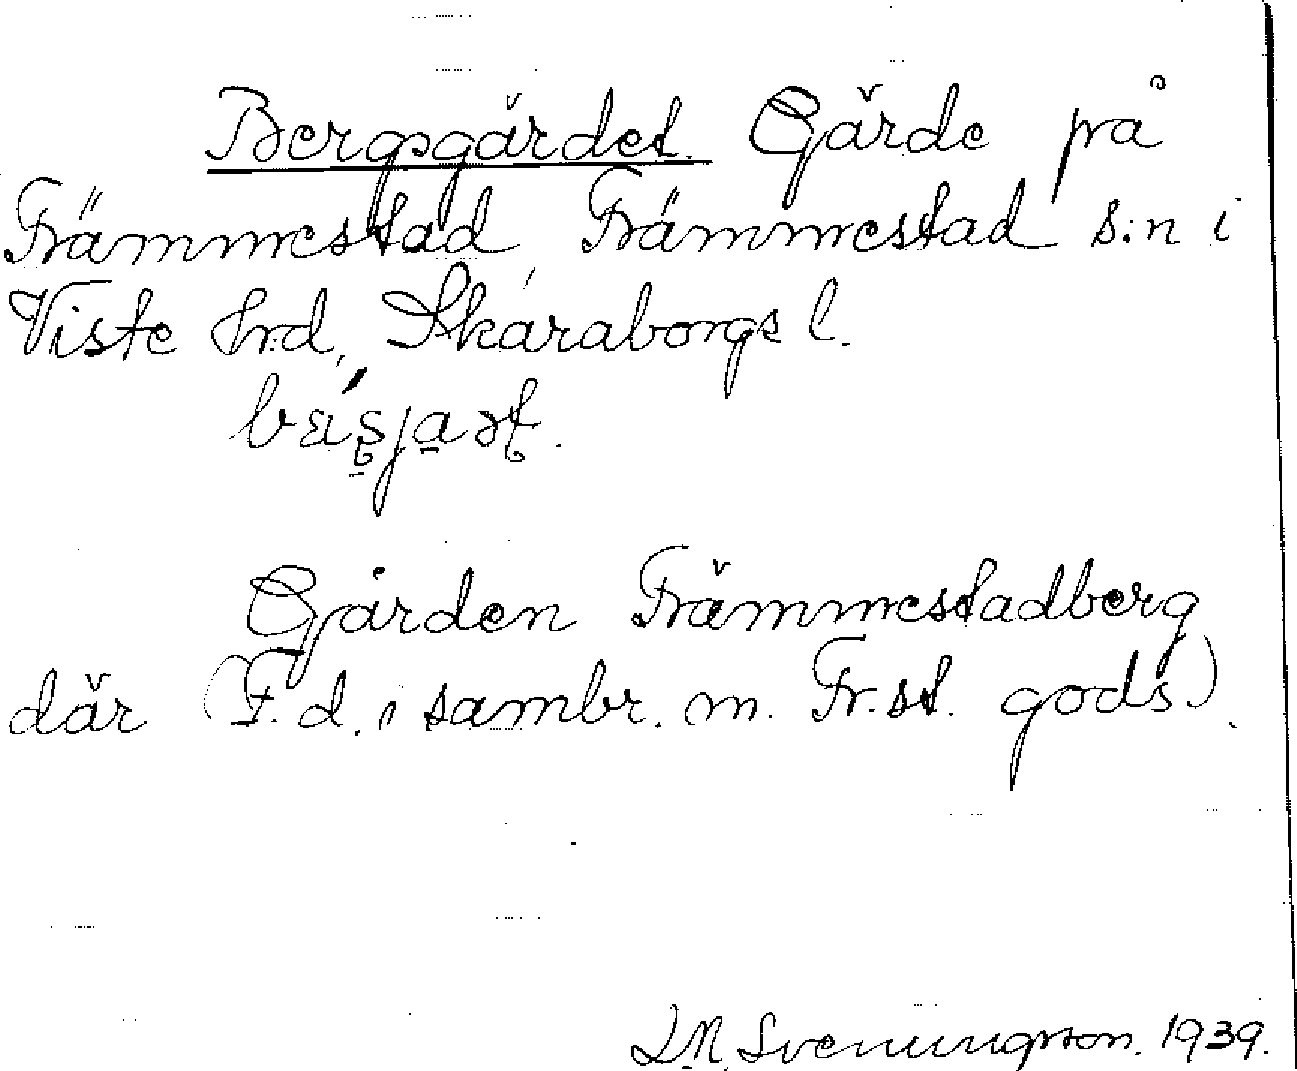 Bergsgärdet. Gärde på
Främmestad Främmestad s:n i
Viste hrd, Skaraborgs l.
Gården Främmestadberg
där (F.d. i sambr. m. Fr.st. gods).
Svenungsson. 1939.